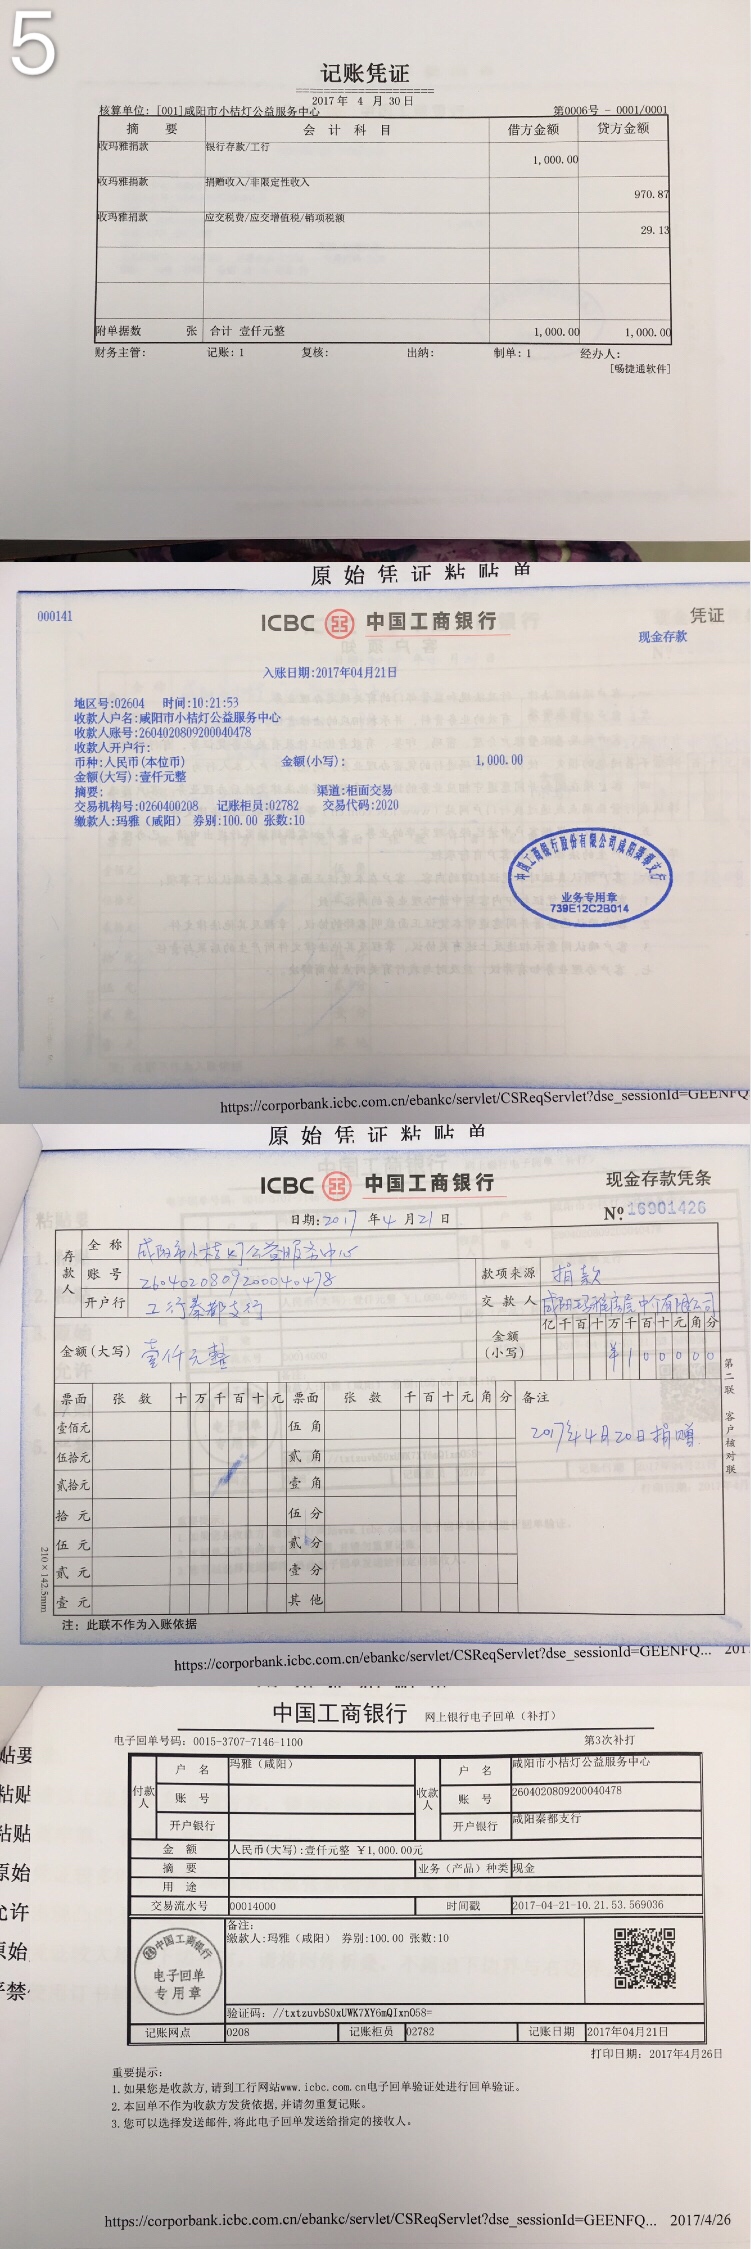 5
记账凭证
2017 年 4 月 30 日
核算单位: [001]咸阳市小桔灯公益服务中心 第0006号 - 0001/0001
摘 要 会 计 科 目 借方金额 贷方金额
收玛雅捐款 银行存款/工行 1,000.00
收玛雅捐款 捐赠收入/非限定性收入 970.87
收玛雅捐款 应交税费/应交增值税/销项税额 29.13
附单据数 张 合计 壹仟元整 1,000.00 1,000.00
财务主管: 记账: 1 复核: 出纳: 制单: 1 经办人:
[畅捷通软件]
原 始 凭 证 粘 贴 单
000141 ICBC 中国工商银行 凭证
现金存款
入账日期:2017年04月21日
地区号:02604 时间:10:21:53
收款人户名:咸阳市小桔灯公益服务中心
收款人账号:2604020809200040478
收款人开户行:
币种:人民币(本位币) 金额(小写): 1,000.00
金额(大写):壹仟元整
摘要: 渠道:柜面交易
交易机构号:0260400208 记账柜员:02782 交易代码:2020
缴款人:玛雅(咸阳) 券别:100.00 张数:10
中国工商银行股份有限公司咸阳秦都支行
业务专用章
739E12C2B014
https://corporbank.icbc.com.cn/ebankc/servlet/CSReqServlet?dse_sessionId=GEENFQ
原 始 凭 证 粘 贴 单
ICBC 中国工商银行 现金存款凭条
日期:2017 年 4 月 21 日 № 16901426
存款人 全 称 咸阳市小桔灯公益服务中心
账 号 2604020809200040478 款项来源 捐款
开户行 工行秦都支行 交 款 人 咸阳玛雅房屋中介有限公司
金额(大写) 壹仟元整 金额(小写) 亿 千 百 十 万 千 百 十 元 角 分
¥ 1 0 0 0 0 0
票面 张 数 十 万 千 百 十 元 票面 张 数 千 百 十 元 角 分 备注
壹佰元 伍 角 2017年4月20日捐赠
伍拾元 贰 角
贰拾元 壹 角
拾 元 伍 分
伍 元 贰 分
贰 元 壹 分
壹 元 其 他
第二联 客户核对联
210×142.5mm
注: 此联不作为入账依据
https://corporbank.icbc.com.cn/ebankc/servlet/CSReqServlet?dse_sessionId=GEENFQ... 201
中国工商银行 网上银行电子回单（补打）
电子回单号码: 0015-3707-7146-1100 第3次补打
付款人 户 名 玛雅（咸阳） 收款人 户 名 咸阳市小桔灯公益服务中心
账 号 账 号 2604020809200040478
开户银行 开户银行 咸阳秦都支行
金 额 人民币(大写):壹仟元整 ￥1,000.00元
摘 要 业务（产品）种类 现金
用 途
交易流水号 00014000 时间戳 2017-04-21-10.21.53.569036
备注:
缴款人:玛雅（咸阳） 券别:100.00 张数:10
中国工商银行
电子回单
专用章
验证码: //txtzuvbS0xUWK7XY6mQIxnO58=
记账网点 0208 记账柜员 02782 记账日期 2017年04月21日
打印日期: 2017年4月26日
重要提示:
1.如果您是收款方,请到工行网站www.icbc.com.cn电子回单验证处进行回单验证。
2.本回单不作为收款方发货依据,并请勿重复记账。
3.您可以选择发送邮件,将此电子回单发送给指定的接收人。
https://corporbank.icbc.com.cn/ebankc/servlet/CSReqServlet?dse_sessionId=GEENFQ... 2017/4/26